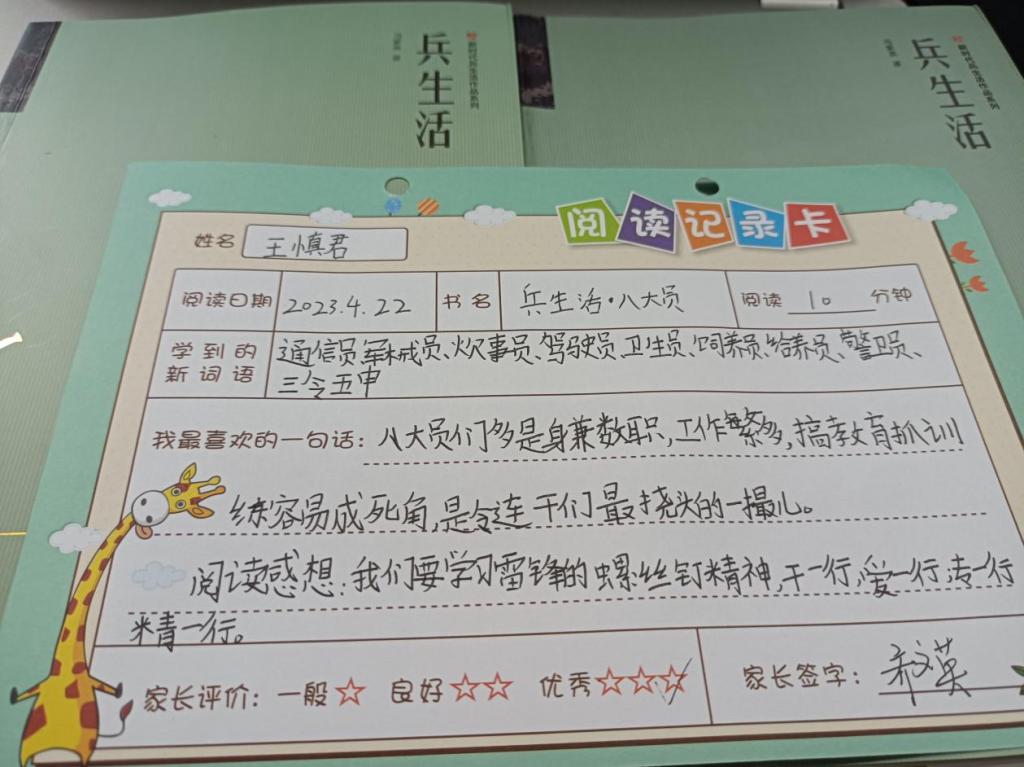 新时代兵生活作品系列
兵生活
新时代兵生活作品系列
兵生活
阅读记录卡
姓名 王慎君
阅读日期 2023.4.22 书名 兵生活·八大员 阅读 10 分钟
学到的新词语 通信员、军械员、炊事员、驾驶员、卫生员、饲养员、给养员、警卫员、
三令五申
我最喜欢的一句话：八大员们多是身兼数职，工作繁多，搞教育抓训
练容易成死角，是令连干们最挠头的一撮儿。
阅读感想：我们要学习雷锋的螺丝钉精神，干一行，爱一行，专一行
精一行。
家长评价：一般☆ 良好☆☆ 优秀☆☆☆✓ 家长签字：